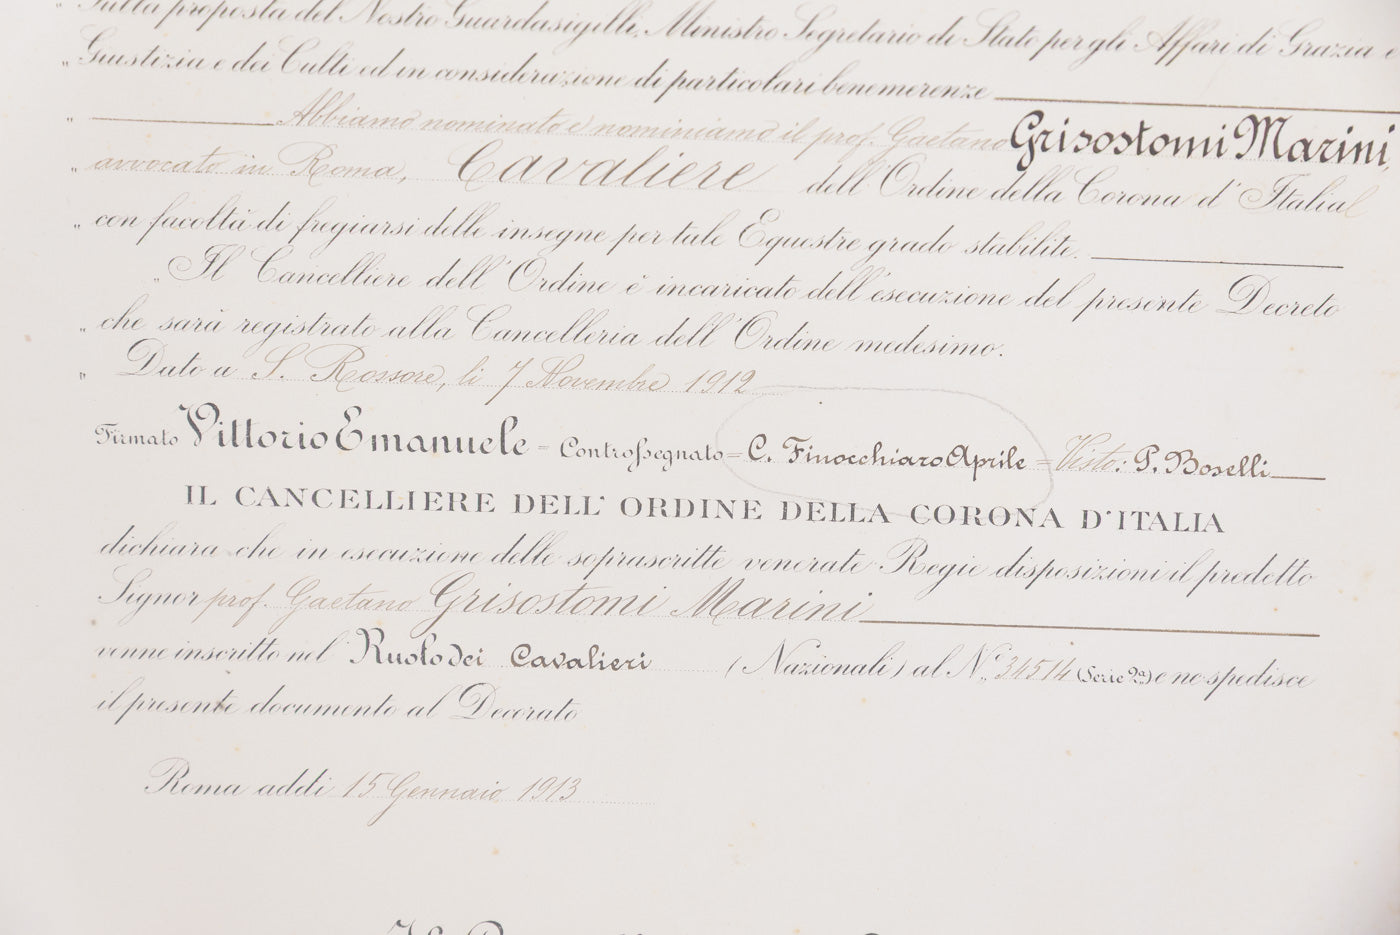 „ Sulla proposta del Nostro Guardasigilli, Ministro Segretario di Stato per gli Affari di Grazia e
„ Giustizia e dei Culti ed in considerazione di particolari benemerenze
„ Abbiamo nominato e nominiamo il prof. Gaetano Grisostomi Marini,
„ avvocato in Roma, Cavaliere dell'Ordine della Corona d'Italia
„ con facoltà di fregiarsi delle insegne per tale Equestre grado stabilite.
„ Il Cancelliere dell'Ordine è incaricato dell'esecuzione del presente Decreto
„ che sarà registrato alla Cancelleria dell'Ordine medesimo.
„ Dato a S. Rossore, li 7 Novembre 1912
Firmato Vittorio Emanuele = Controssegnato = C. Finocchiaro Aprile = Visto: P. Boselli
IL CANCELLIERE DELL' ORDINE DELLA CORONA D'ITALIA
dichiara che in esecuzione delle soprascritte venerate Regie disposizioni il predetto
Signor prof. Gaetano Grisostomi Marini
venne inscritto nel Ruolo dei Cavalieri (Nazionali) al N.° 34514 (Serie 2ª) e ne spedisce
il presente documento al Decorato
Roma addì 15 Gennaio 1913